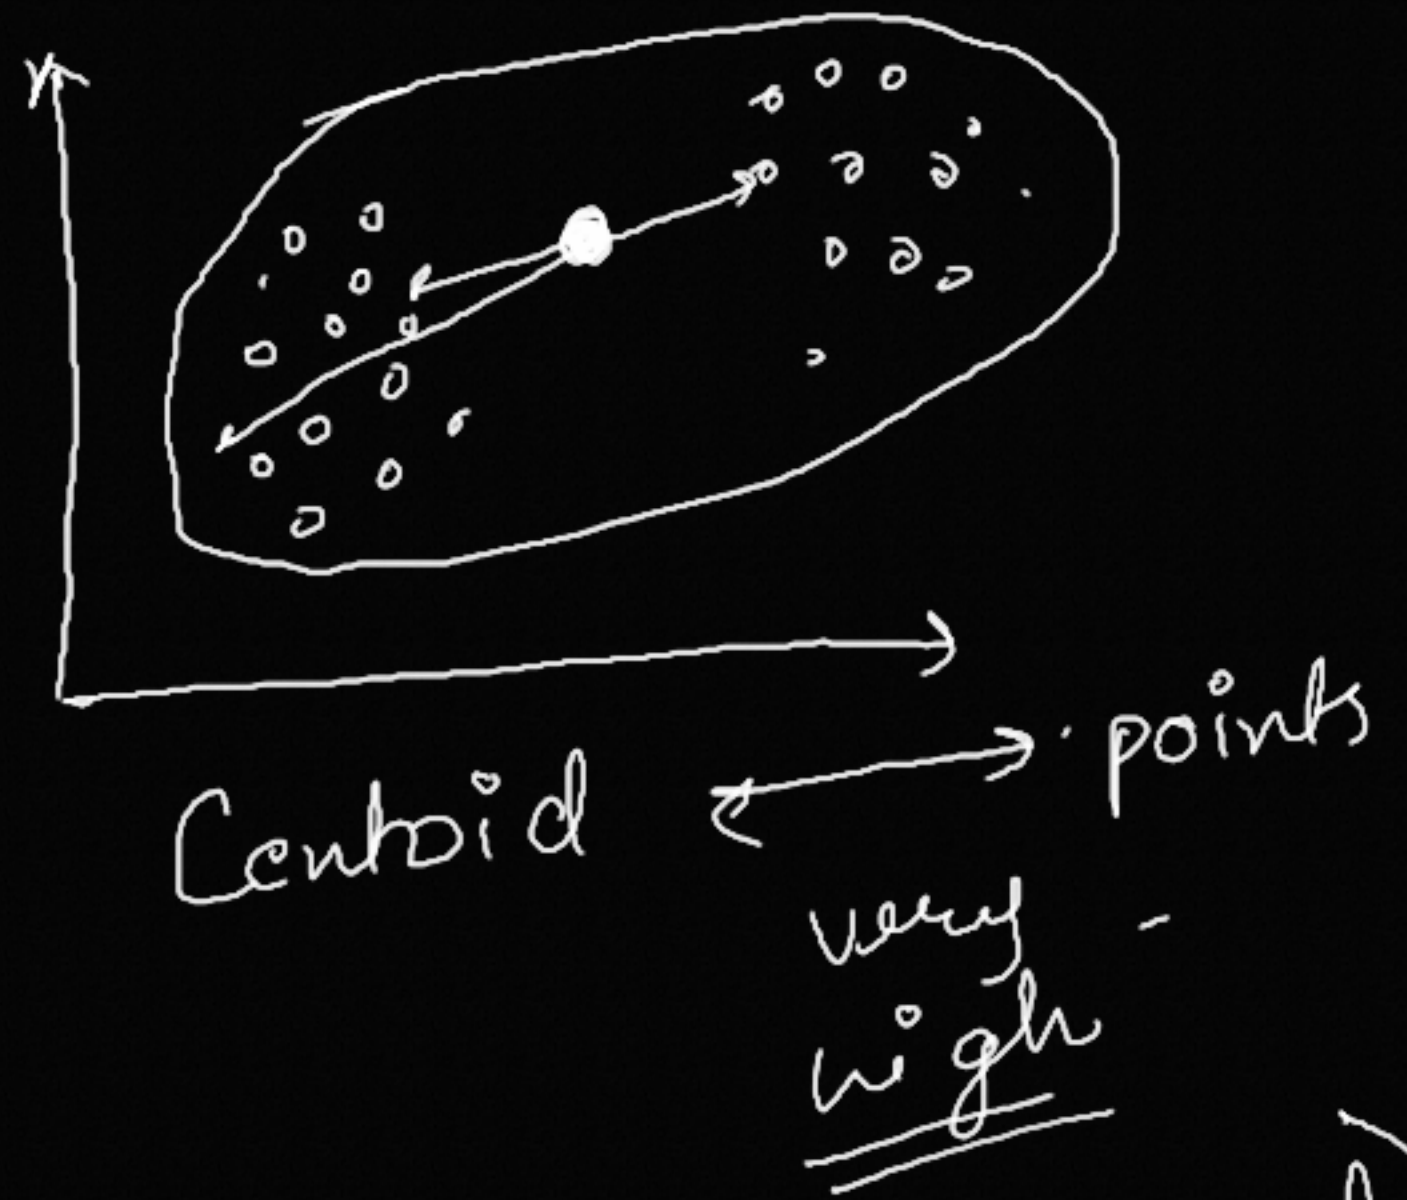 Y
Centroid ⟷ points
very
high